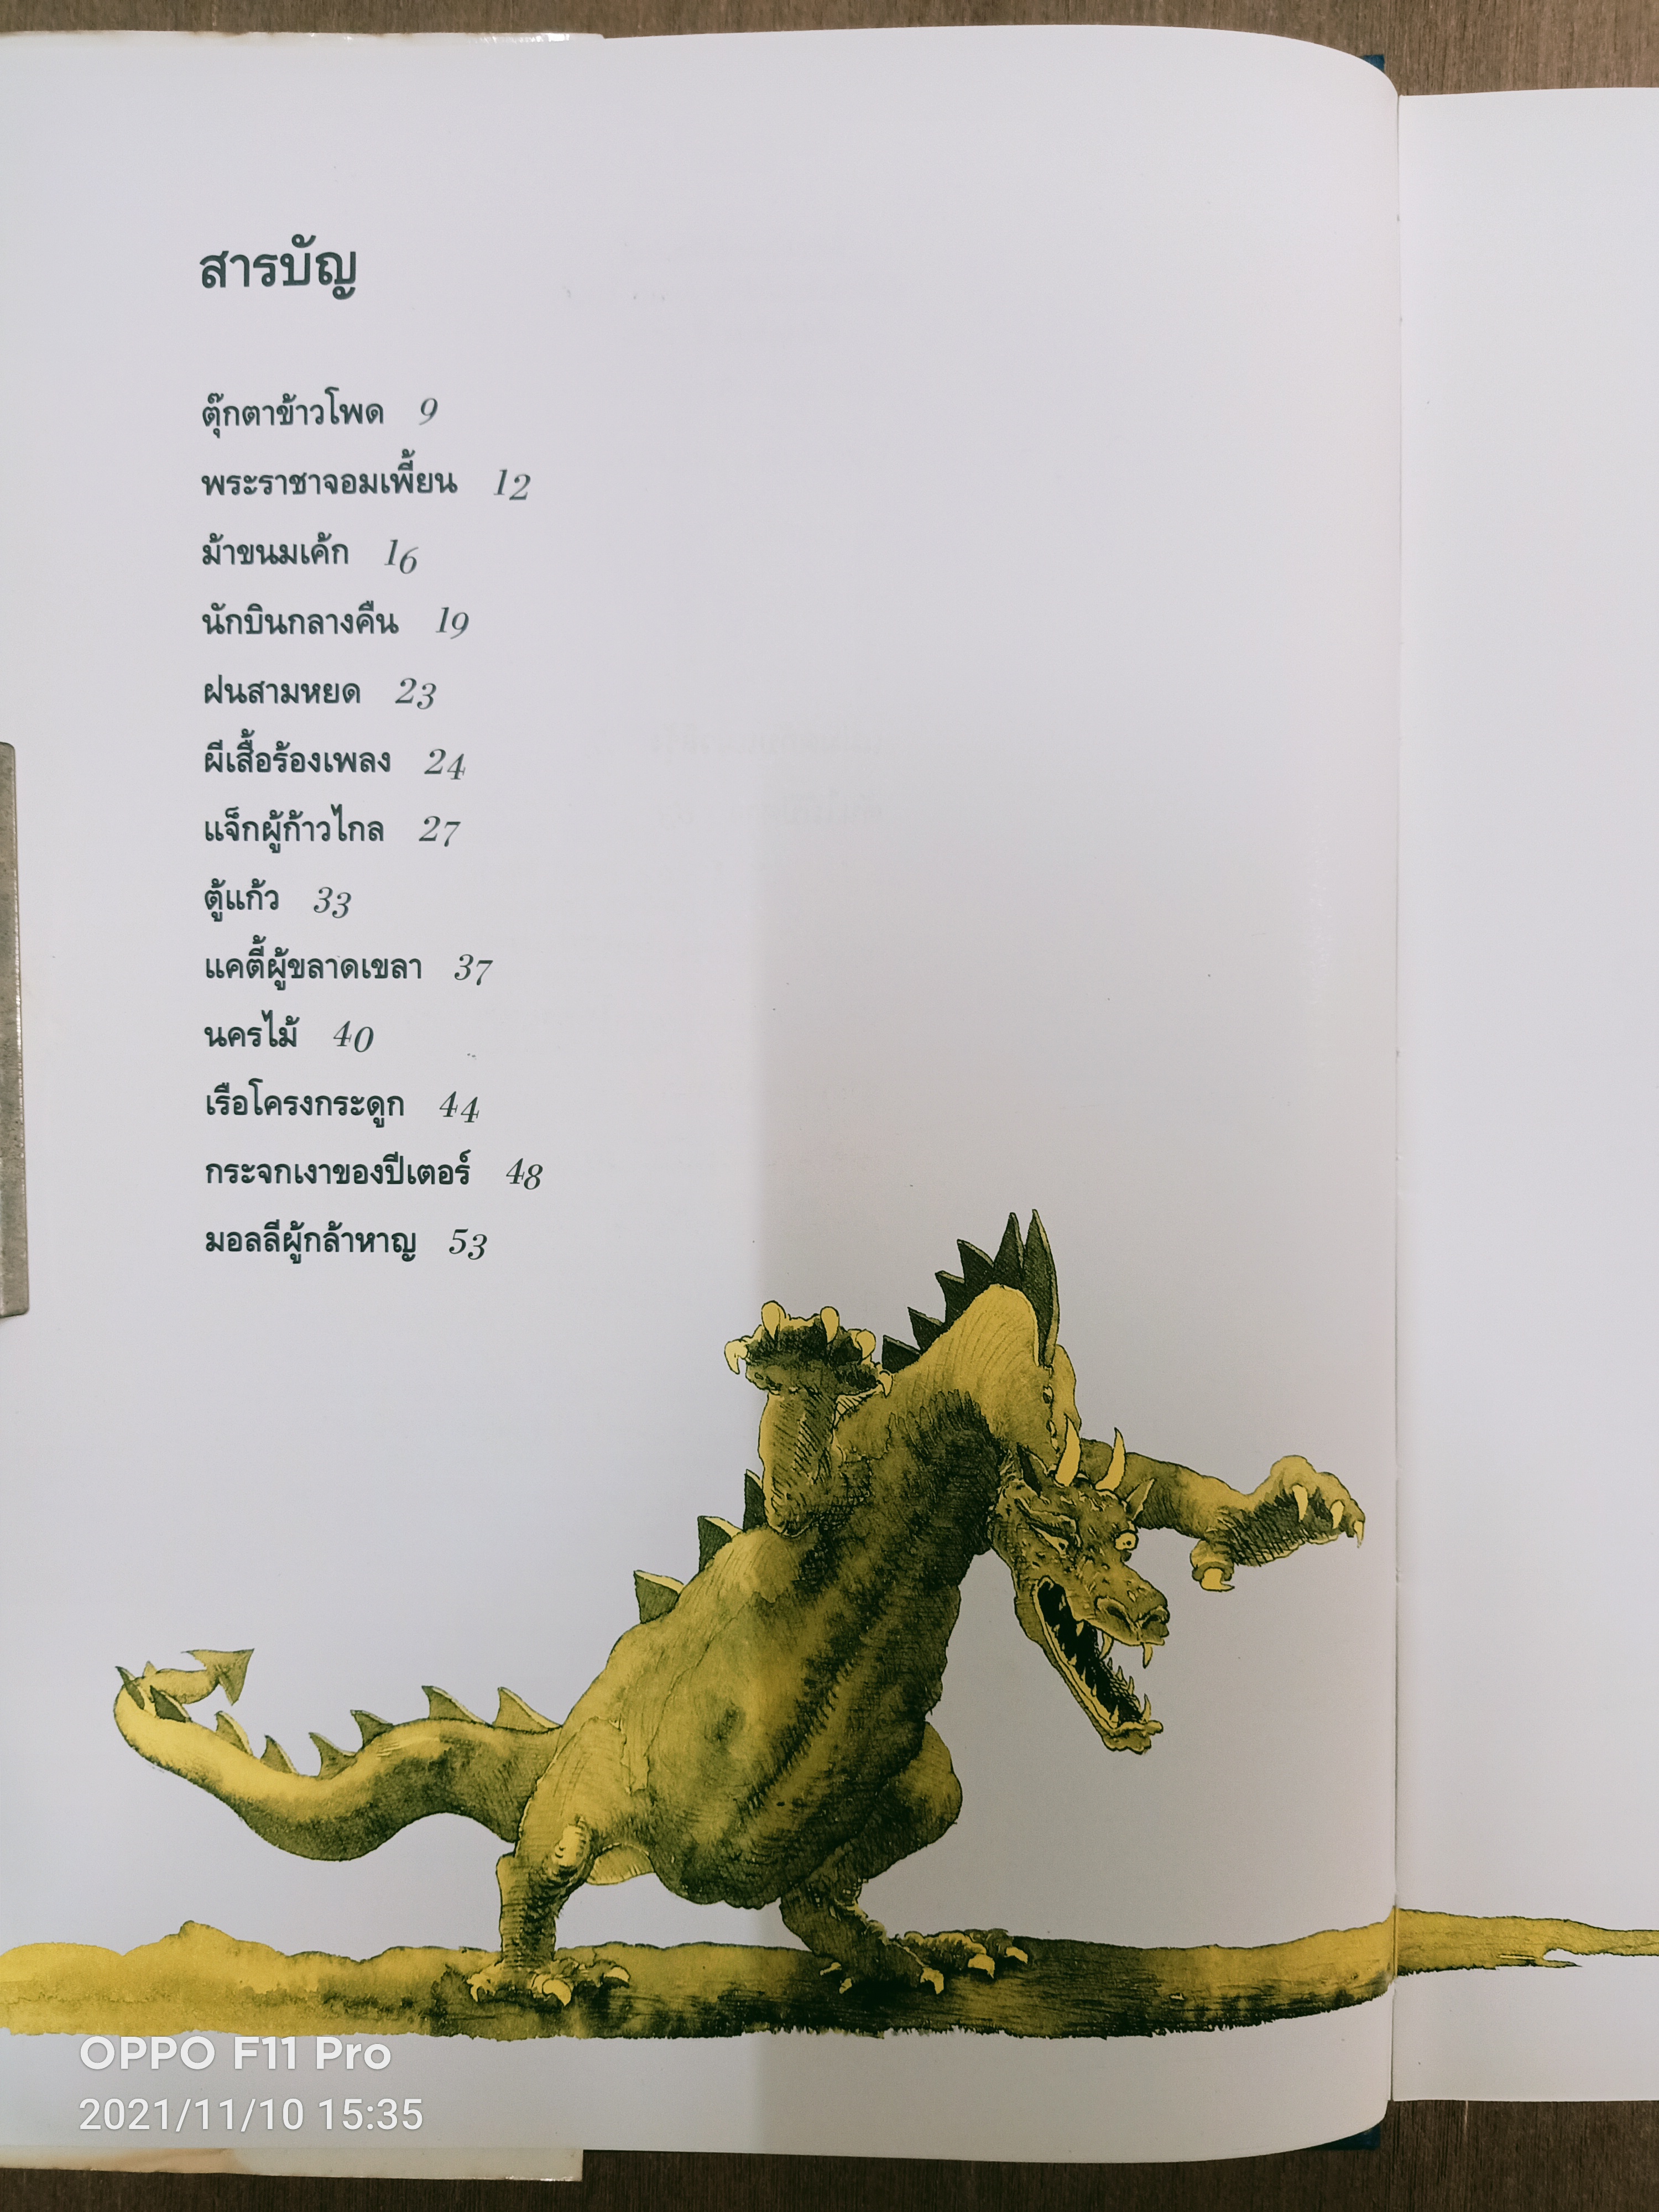 สารบัญ
ตุ๊กตาข้าวโพด 9
พระราชาจอมเพี้ยน 12
ม้าขนมเค้ก 16
นักบินกลางคืน 19
ฝนสามหยด 23
ผีเสื้อร้องเพลง 24
แจ็กผู้ก้าวไกล 27
ตู้แก้ว 33
แคตี้ผู้ขลาดเขลา 37
นครไม้ 40
เรือโครงกระดูก 44
กระจกเงาของปีเตอร์ 48
มอลลีผู้กล้าหาญ 53
OPPO F11 Pro
2021/11/10 15:35